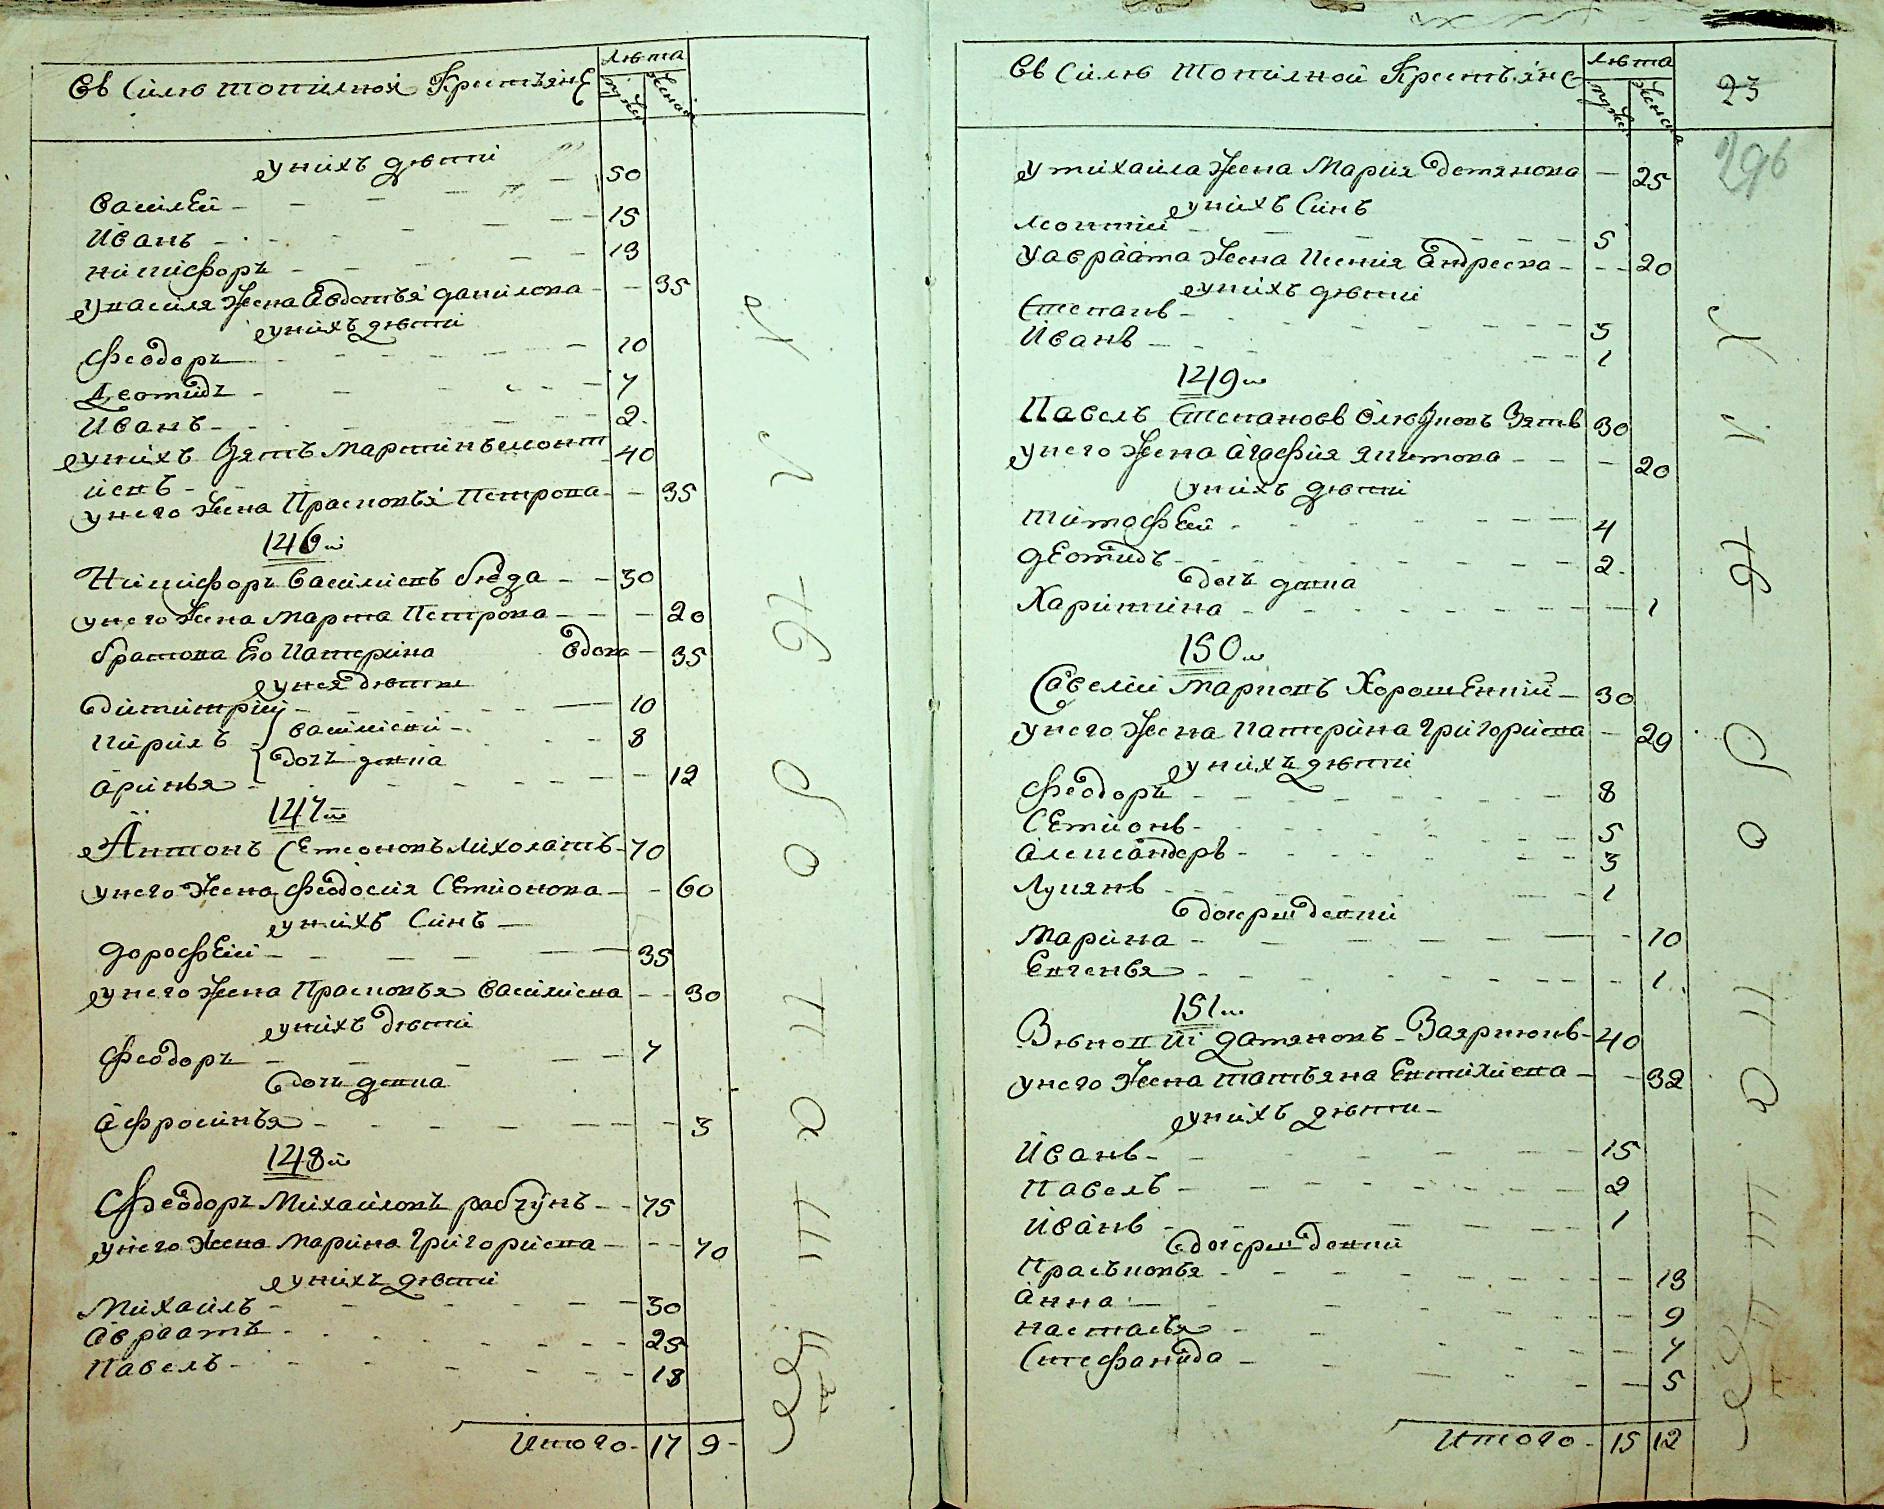 Въ Силѣ Топилной Крестьянє
Лѣта
Мужс
Женск
у нихъ дѣти
Василей - - - 50
Иванъ - - - 15
Никифоръ - - - 13
у Василя жена Авдотья Данилова - - 35
у нихъ дѣти
Феодоръ - - - 10
Деомидъ - - - 7
Иванъ - - - 2
у нихъ Зять Мартинъ Леонт 40
иевъ -
у него жена Прасковья Петрова - - 35
146й
Никифоръ Василиевъ - - 30
у него жена Марта Петрова - - 20
братова Его Катерина вдова - 35
у нея дѣти
Димитрий - - - 10
Кирилъ Василиеви - - 8
дочь девка
Аринья - - - 12
147й
Антонъ Семеоновъ - 70
у него жена Феодосия Семионова - - 60
у нихъ Синъ -
Дорофей - - - 35
у него жена Прасковья Василиева - - 30
у нихъ дѣти
Феодоръ - - - 7
дочь девка
Афросинья - - - 3
148й
Феодоръ Михайловъ рабчунъ - - 75
у него жена Марина Григориева - - 70
у нихъ дѣти
Михайлъ - - - 30
Авраамъ - - - 25
Павелъ - - - 18
Итого - 17 9 -
Въ Силѣ Топилной Крестьянє
Лѣта
Мужс
Женска
23
296
у Михаила жена Мария Демянова - 25
у нихъ Синъ
Леонтий - - - 5
у Авраама жена Ксения Андреева - - - 20
у нихъ дѣти
Степанъ - - - 3
Иванъ - - - 1
149й
Павелъ Степановъ Зятъ 30
у него жена Агафия Якимова - - - 20
у нихъ дѣти
Тимофей - - - 4
Деомидъ - - - 2
дочь девка
Харитина - - - 1
150й
Савелий Марковъ Хорошенкий - 30
у него жена Катерина Григориева - 29
у нихъ дѣти
Феодоръ - - - 8
Семионъ - - - 5
Александеръ - - - 3
Лукянъ - - - 1
дочери девки
Марина - - - 10
Евгенья - - - 1
151й
Демяновъ - 40
у него жена Татьяна Евтихиева - - 32
у нихъ дѣти -
Иванъ - - - 15
Павелъ - - - 2
Иванъ - - - 1
дочери девки
Прасковья - - - 13
Анна - - - 9
Настасья - - - 7
Стефанида - - - 5
Итого - 15 12